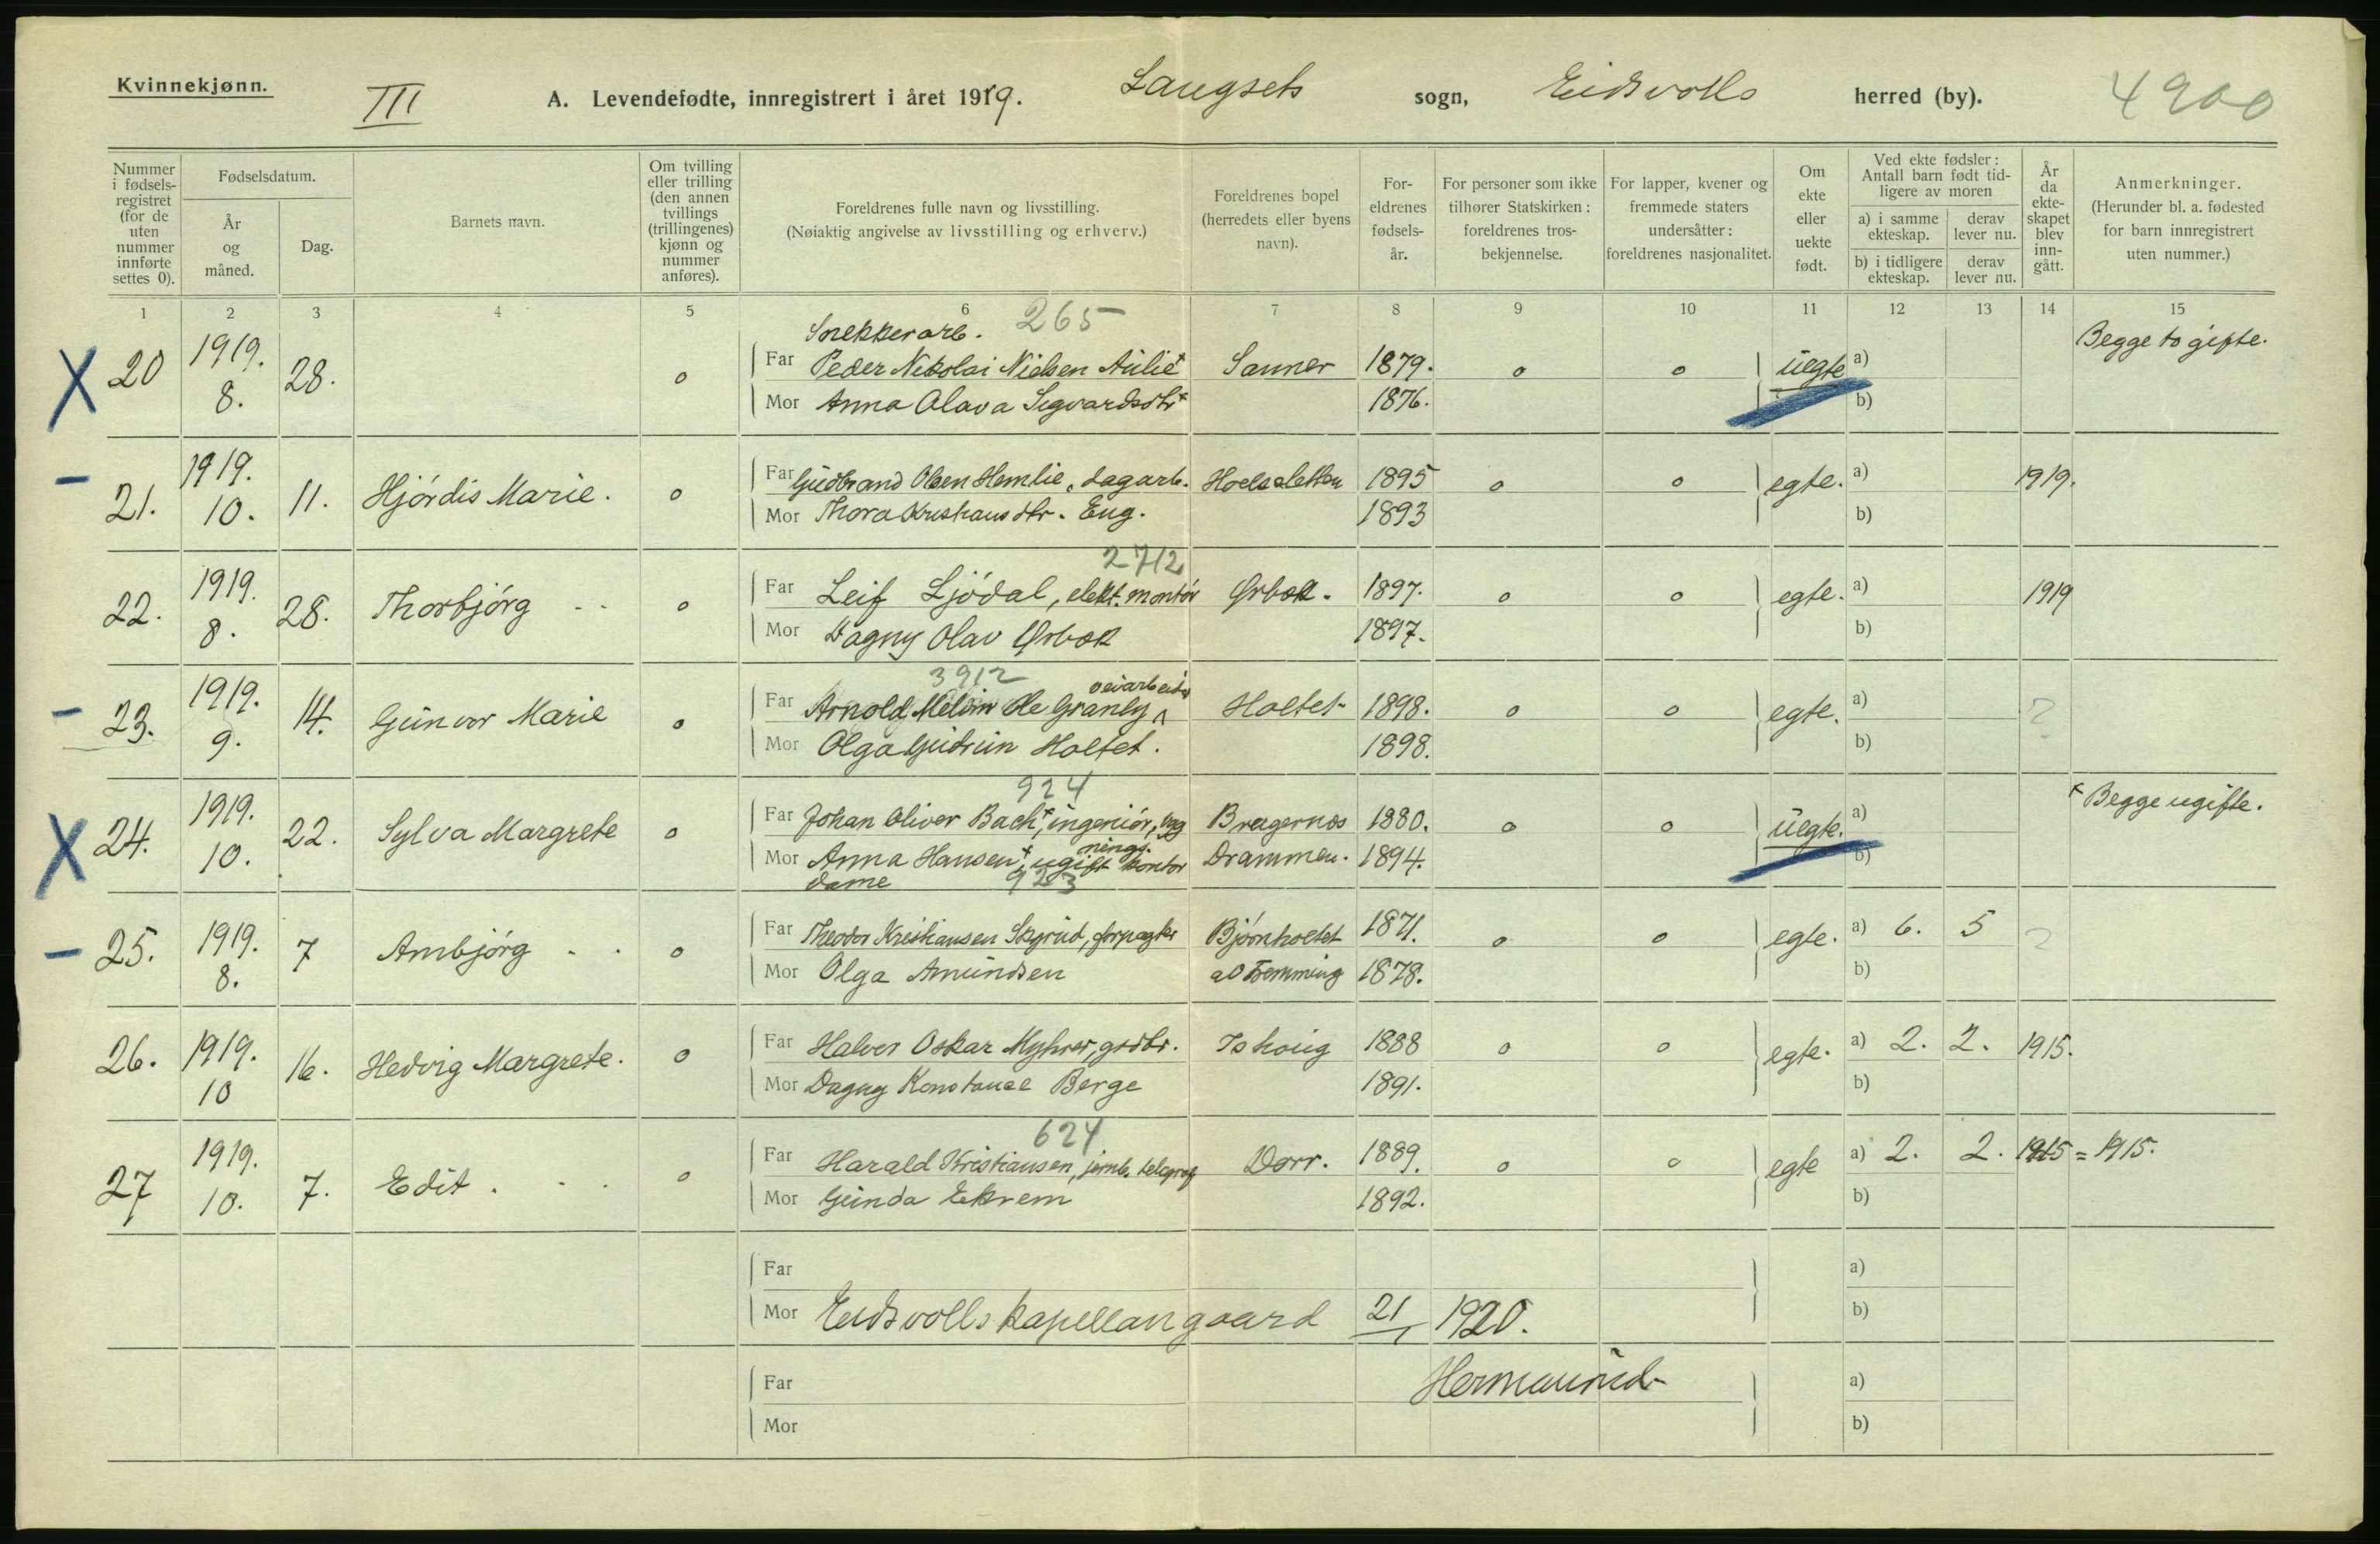 Kvinnekjønn.
III
A. Levendefødte, innregistrert i året 1919.
Langsets sogn, Eidsvolls herred (by).
4900
Nummer i fødsels-registret (for de uten nummer innførte settes 0).
Fødselsdatum.
År og måned.
Dag.
Barnets navn.
Om tvilling eller trilling (den annen tvillings (trillingenes) kjønn og nummer anføres).
Foreldrenes fulle navn og livsstilling.
(Nøiaktig angivelse av livsstilling og erhverv.)
Foreldrenes bopel (herredets eller byens navn).
For-eldrenes fødsels-år.
For personer som ikke tilhører Statskirken: foreldrenes tros-bekjennelse.
For lapper, kvener og fremmede staters undersåtter: foreldrenes nasjonalitet.
Om ekte eller uekte født.
Ved ekte fødsler: Antall barn født tid-ligere av moren
a) i samme ekteskap.
derav lever nu.
b) i tidligere ekteskap.
derav lever nu.
År da ekte-skapet blev inn-gått.
Anmerkninger.
(Herunder bl. a. fødested for barn innregistrert uten nummer.)
1 2 3 4 5 6 7 8 9 10 11 12 13 14 15
Snekkerarb. 265
X 20 1919. 8. 28. o
Far Peder Nikolai Nielsen Aulie+ Sanner 1879. o o uegte a) Begge to gifte.
Mor Anna Olava Sigvardsdtr+ 1876. b)
- 21. 1919. 10. 11. Hjørdis Marie. o
Far Gudbrand Olsen Hemlie, dagarb. Hoelsletten 1895 o o egte. a) 1919.
Mor Thora Kristiansdtr. Eng. 1893 b)
2712
22. 1919. 8. 28. Thorbjørg - - o
Far Leif Ljødal, elekt. montør Ørbæk. 1897. o o egte. a) 1919
Mor Dagny Olav Ørbæk 1897. b)
3912
- 23. 1919. 9. 14. Gunvor Marie o
Far Arnold Ole Granly veiarbeider Holtet 1898. o o egte. a) ?
Mor Olga Gudrun Holtet. 1898. b)
924
X 24. 1919. 10. 22. Sylva Margrete o
Far Johan Oliver Bach+, ingeniør, Bragernes 1880. o o uegte. a) + Begge ugifte.
Mor Anna Hansen+, ugift kontor Drammen. 1894. b)
dame 923
- 25. 1919. 8. 7 Ambjørg - - o
Far Theodor Kristiansen Skgrud, forpagter Bjørnholtet 1871. o o egte. a) 6. 5 ?
Mor Olga Amundsen 1878. b)
26. 1919. 10 16. Hedvig Margrete. o
Far Halvor Oskar Myhrer, grdbr. Ishoug 1888 o o egte. a) 2. 2. 1915.
Mor Dagny Konstance Berge 1891. b)
624
27 1919. 10. 7. Edit. - - o
Far Harald Kristiansen, jernb. telegraf Dorr. 1889. o o egte a) 2. 2. 1915 = 1915.
Mor Gunda Ekrem 1892. b)
Far a)
Mor Eidsvolls kapellangaard 21/1 1920. b)
Far a)
Mor b)